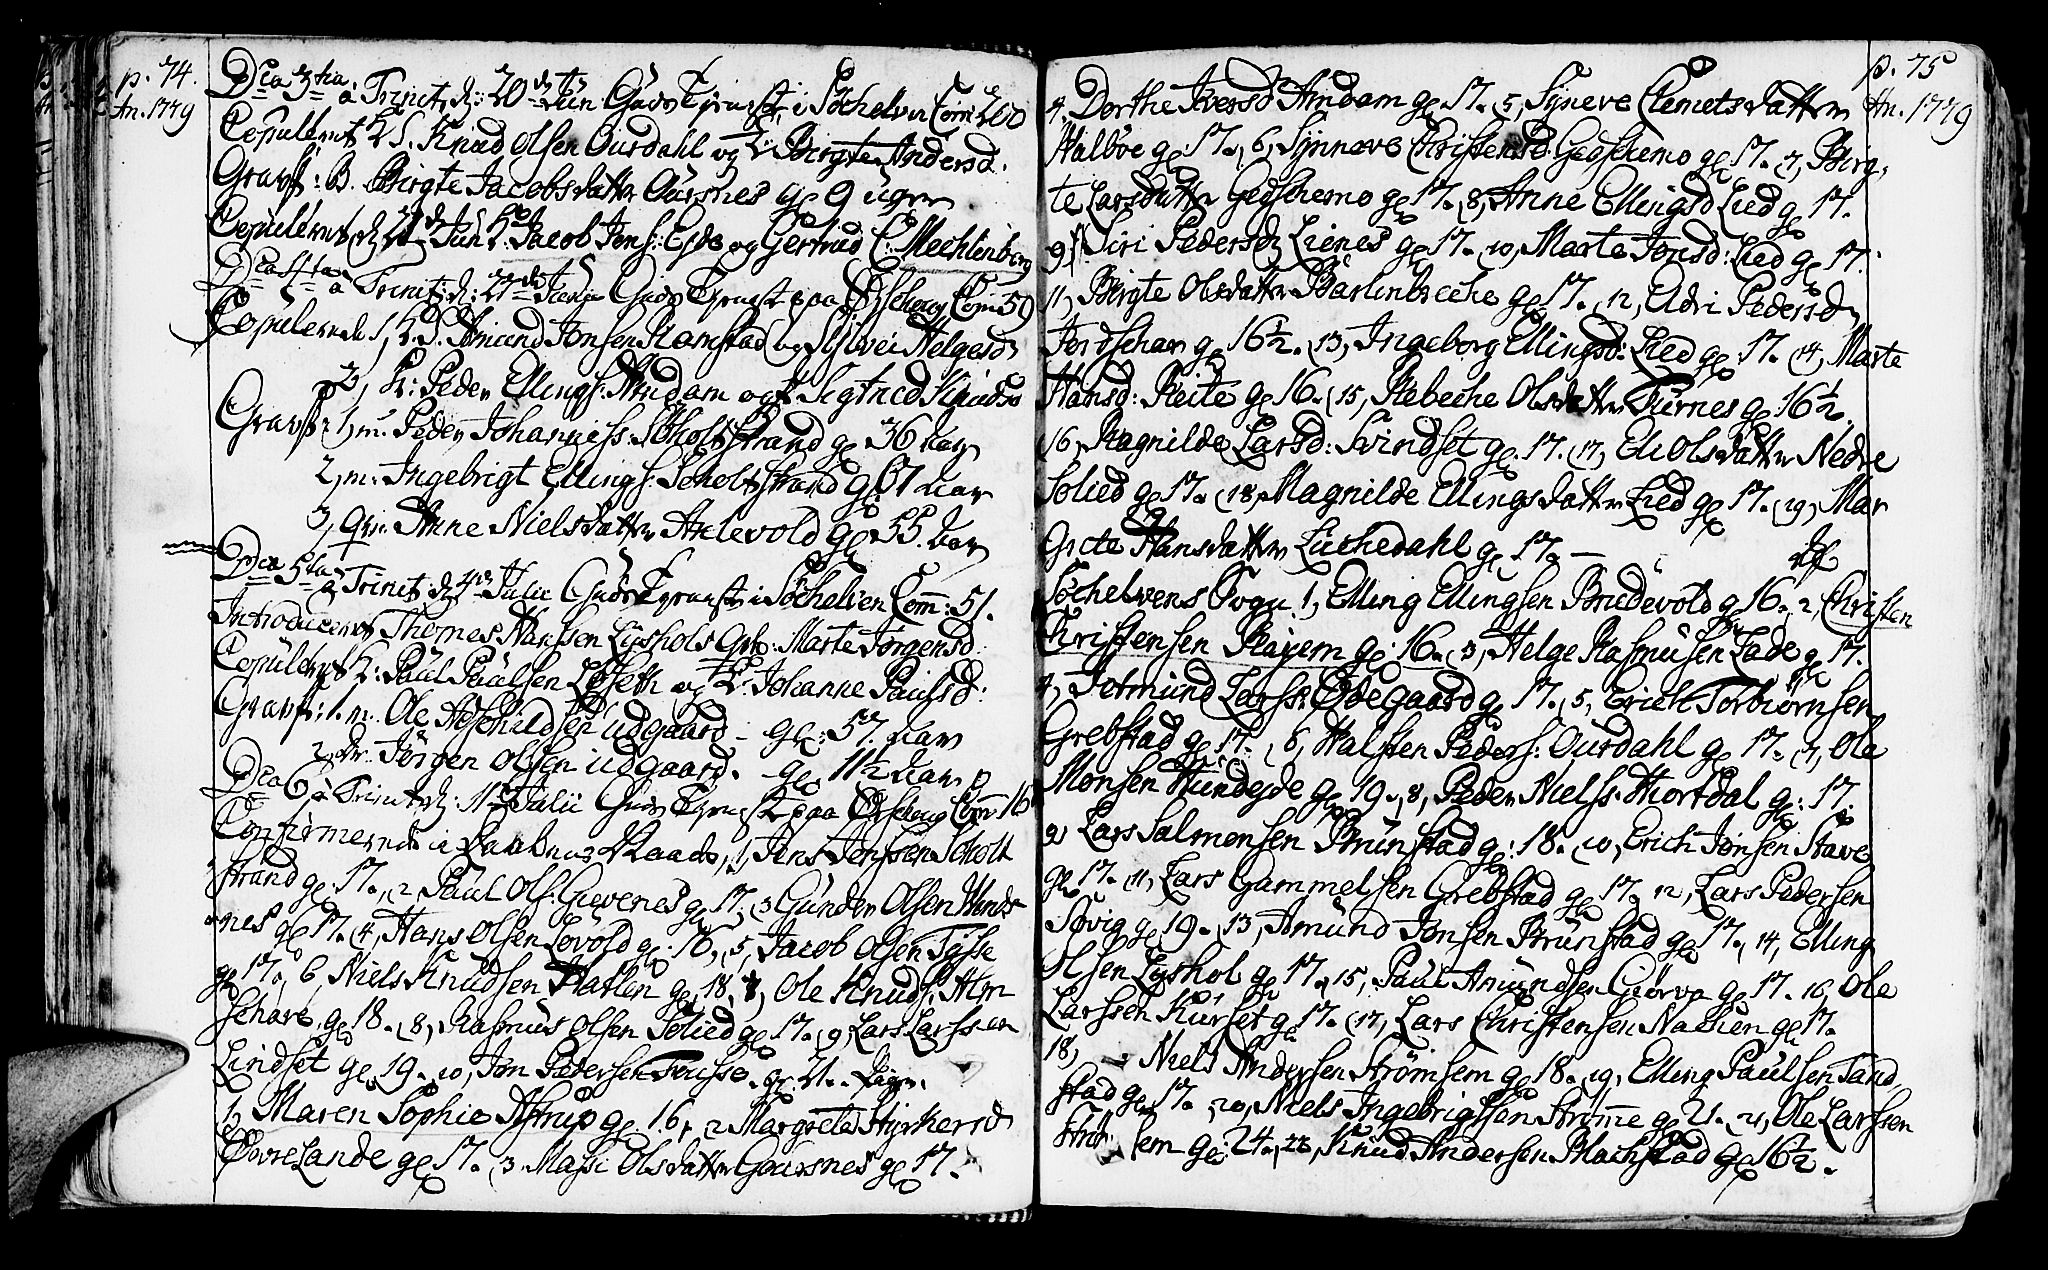 p. 74.
An. 1779
Dca 3tia à Trinit: d: 20de Jun Guds Tjenest i Söchelven Com: 200
Copulerut K S. Knud Olsen Ourdahl og Birgte Andersd.
Gravf: B. Birgte Jacobsdatter Aursnes gl 9 uger
Copulerut d 21 Jun K. Jacob Jens: Eide og Gertrud C: Mechlenborg
Dca 4ta à Trinit: d: 27de Junij Guds Tjenest paa Ørschoug Com: 59
Copulerede 1, K. S. Amund Jonsen Ramstad og Sylvei Helgesd
2, K: Peder Ellings: Amdam og Sigtrud Knudsd
Gravf: 1, m. Peder Johanness: Scholtstrand gl 36 aar
2, m: Ingebrigt Ellings: Scholtstrand gl 67 aar
3, qv: Anne Nielsdatter Andevold gl 55. aar
Dca 5ta à Trinit: d 4de Julii Guds Tjenest i Söchelven Com: 51.
Introducerut Thomes Hanssen Lyshols Qv: Marte Jörgensd.
Copulerut K: Paul Paulsen Löseth og Johanne Paulsd:
Gravf: 1. m. Ole Aschildsen udgaard - gl: 57. aar
2 dr. Jörgen Olsen udgaard. - gl. 11½ aar
Dca 6 à Trinit d: 11te Julii Guds Tjenest paa Ørschoug Com 16
Confirmerede i Daabens Naade, 1, Jens Jenssen Scholt
strand gl: 17., 2 Paul Ols: Gievenes gl 17. 3 Gunder Olsen Wends
nes gl 17. 4, Hans Olsen Lövold gl: 16, 5, Jacob Olsen Tysse
gl 17., 6, Niels Knudsen Hatlen gl, 18, 7, Ole Knuds: Alm
schare, gl 18. 8, Rasmus Olsen Solied gl 17. 9, Lars Larssen
Lindset gl 19. 10, Jon Pedersen Tousse. gl: 21. Piger.
1, Maren Sophie Astrup gl: 16, 2 Margrete Styrkersd
ØvreLande gl 17. 3 Massi Olsdatter Goursnes gl 17.
p. 75
An. 1779
4. Dorthe Iversd Amdam gl 17. 5, Syneve Clemetsdatter
Halböe gl: 17., 6, Synneve Christensd: Gedschemo gl 17. 7, Birg,
te Larsdatter Gedschemo gl 17. 8, Anne Ellingsd Lied gl 17.
9, Siri Pedersd Lienes gl 17. 10, Marte Jonsd: Lied gl 17.
11, Birgte Olsdatter Barlinbreche gl 17. 12, Adri Pedersd
Jordschar gl 16½. 13, Ingeborg Ellingsd: Lied gl 17. 14, Marte
Hansd: Reite gl 16. 15, Rebeche Olsdatter Furnes gl 16½.
16, Ragnilde Larsd: Svindset gl. 17. 17, Eli Olsdatter Nedre
Solied gl 17. 18, Magnilde Ellingsdatter Lied gl 17. 19, Mar
Grete Hansdatter Luchedahl gl 17. — Af
Söchelvens Sogn 1, Elling Ellingsen Brudevold gl 16., 2, Christen
Christensen Rayem gl: 16. 3, Helge Rasmusen Lade gl 17.
4, Tormund Larss: Ødegaard gl 17. 5, Erich Torbiörnsen
Grebstad gl 17. 6, Halsten Peders: Ourdahl gl 17. 7, Ole
Monsen Hundeide gl 19. 8, Peder Nielss: Hiortdal gl: 17.
9 Lars Salmonsen Brunstad gl: 18. 10, Erich Jonsen Stave
gl 17. 11, Lars Gammelsen Grebstad gl 17. 12, Lars Pedersen
Søvig gl 19. 13, Amund Jonsen Brunstad gl 17. 14, Elling
Olsen Lyshol gl 17. 15, Paul Amundsen Giörva gl 17. 16, Ole
Larssen Kurset gl 17. 17, Lars Christensen Nacken gl 17.
18, Niels Andersen Strömsem gl 18. 19, Elling Paulsen Tand,
stad gl 17. 20, Niels Ingebrigtsen Strömme gl 21. 21, Ole Larssen
sem gl: 24. 22, Knud Andersen Machstad gl 16½.